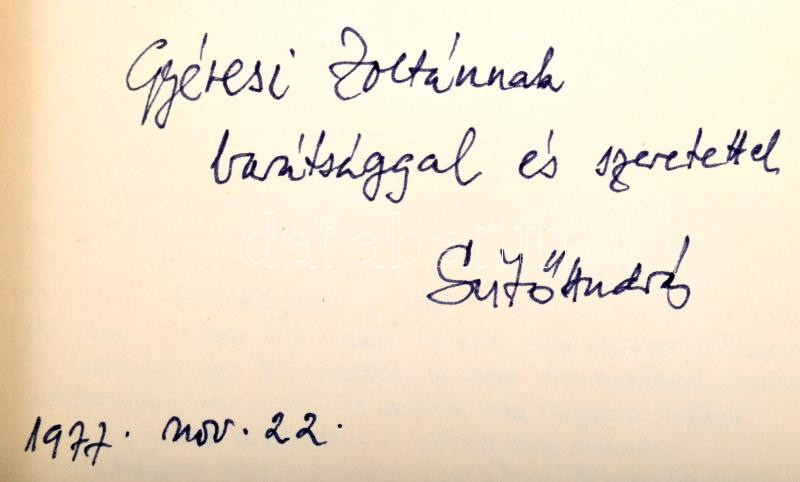 Gyéresi Zoltánnak
barátsággal és szeretettel
Sütő András
1977. nov. 22.